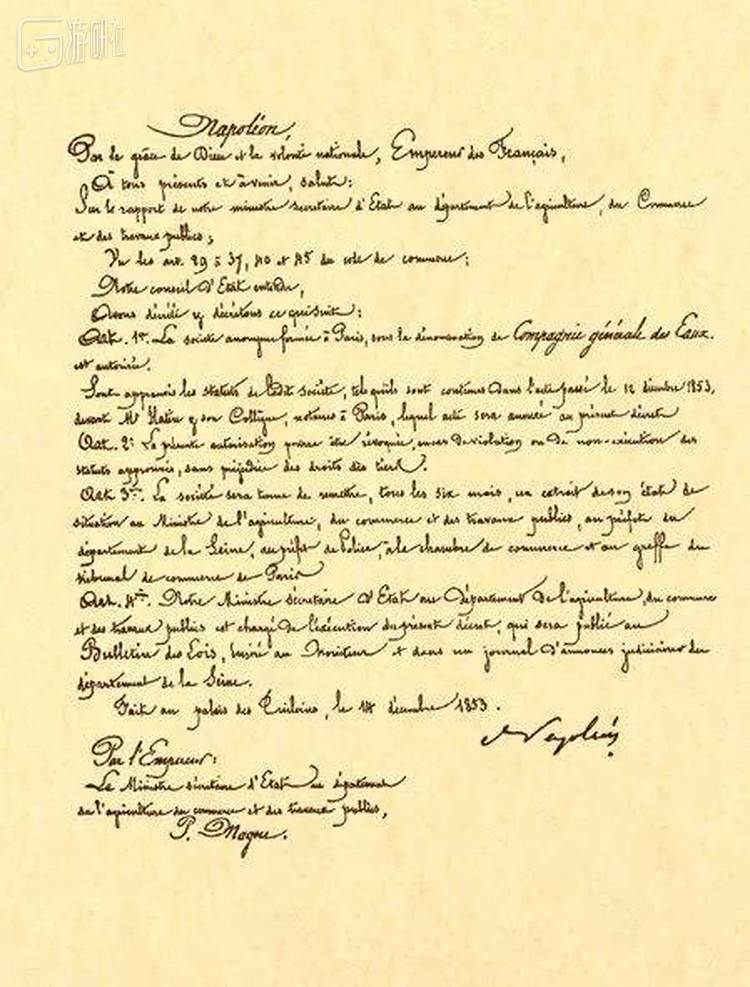 游研社
Napoléon,
Par la grâce de Dieu et la volonté nationale, Empereur des Français,
A tous présents et à venir, salut:
Sur le rapport de notre ministre secrétaire d'Etat au département de l'agriculture, du Commerce
et des travaux publics;
Vu les art. 29 à 37, 40 et 45 du code de commerce;
Notre conseil d'Etat entendu,
Avons décrété & décrétons ce qui suit:
Art. 1er. La société anonyme formée à Paris, sous la dénomination de Compagnie générale des Eaux.
est autorisée.
Sont approuvés les statuts de ladite société, tels qu'ils sont contenus dans l'acte passé le 12 décembre 1853,
devant Me & son Collègue, notaires à Paris, lequel acte sera annexé au présent décret
Art. 2: La présente autorisation pourra être révoquée, en cas de violation ou de non-exécution des
statuts approuvés, sans préjudice des droits des tiers.
Art. 3me. La société sera tenue de remettre, tous les six mois, un extrait de son état de
situation au Ministre de l'agriculture, du commerce et des travaux publics, au préfet du
département de la Seine, au préfet de Police, à la chambre de commerce et au greffe du
tribunal de commerce de Paris
Art. 4me. Notre Ministre secrétaire d'Etat au département de l'agriculture, du commerce
et des travaux publics est chargé de l'exécution du présent décret, qui sera publié au
Bulletin des Lois, inséré au Moniteur et dans un journal d'annonces judiciaires du
département de la Seine.
Fait au palais des Tuileries, le 14 décembre 1853.
Napoléon
Par l'Empereur:
Le Ministre secrétaire d'Etat au département
de l'agriculture du commerce et des travaux publics,
P. Magne.